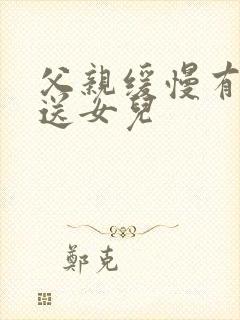 父親緩慢有
送女兒
鄭克